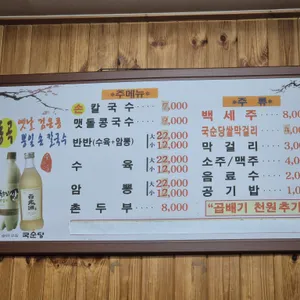 옛날 검은콩
*주메뉴*
손칼국수 ···· 7,000
맷돌콩국수 ·· 8,000
반반(수육+암뽕) 대 22,000
소 12,000
수 육 ···· 대 22,000
소 12,000
암 뽕 ···· 대 22,000
소 12,000
촌 두 부 ···· 8,000
*주 류*
백 세 주 ···· 8,
국순당쌀막걸리
막 걸 리 ···· 3,
소주/맥주 ·· 4,
음 료 수 ···· 2,
공 기 밥 ···· 1,
"곱배기 천원추가
국순당